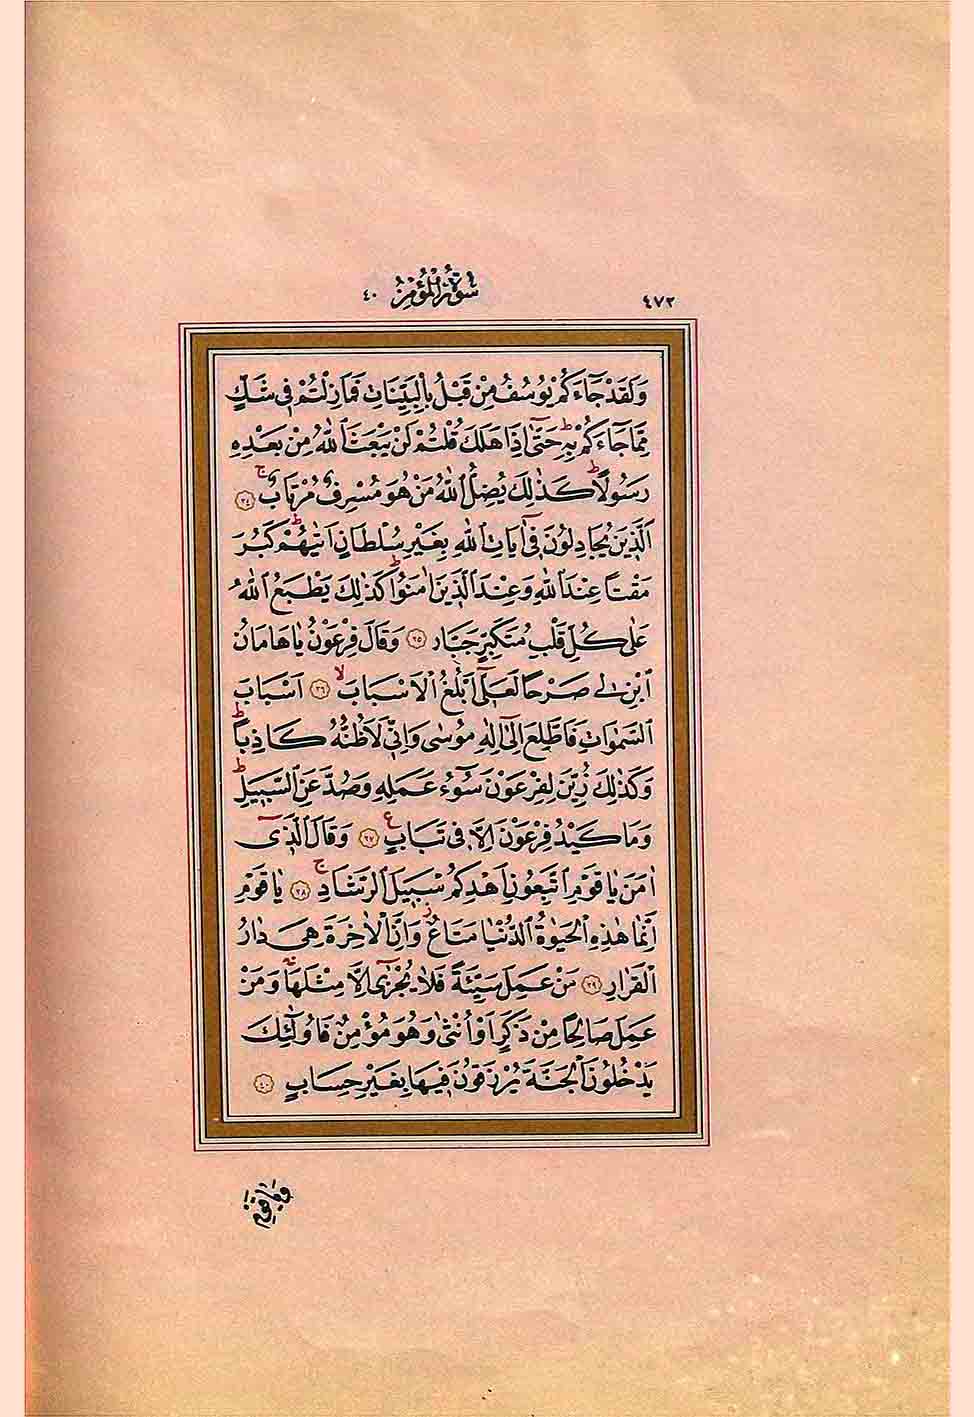 ٤٧٢ سُورَةُ الْمُؤْمِنِ ٤٠
وَلَقَدْ جَٓاءَكُمْ يُوسُفُ مِنْ قَبْلُ بِالْبَيِّنَاتِ فَمَا زِلْتُمْ فٖى شَكٍّ
مِمَّا جَٓاءَكُمْ بِهٖؕ حَتّٰٓى اِذَا هَلَكَ قُلْتُمْ لَنْ يَبْعَثَ اللّٰهُ مِنْ بَعْدِهٖ
رَسُولًاؕ كَذٰلِكَ يُضِلُّ اللّٰهُ مَنْ هُوَ مُسْرِفٌ مُرْتَابٌۚ ٣٤
اَلَّذٖينَ يُجَادِلُونَ فٖٓى اٰيَاتِ اللّٰهِ بِغَيْرِ سُلْطَانٍ اَتٰيهُمْؕ كَبُرَ
مَقْتًا عِنْدَ اللّٰهِ وَعِنْدَ الَّذٖينَ اٰمَنُواؕ كَذٰلِكَ يَطْبَعُ اللّٰهُ
عَلٰى كُلِّ قَلْبِ مُتَكَبِّرٍ جَبَّارٍ ٣٥ وَقَالَ فِرْعَوْنُ يَا هَامَانُ
ابْنِ لٖى صَرْحًا لَعَلّٖٓى اَبْلُغُ الْاَسْبَابَۙ ٣٦ اَسْبَابَ
السَّمٰوَاتِ فَاَطَّلِعَ اِلٰٓى اِلٰهِ مُوسٰى وَاِنّٖى لَاَظُنُّهُ كَاذِبًاؕ
وَكَذٰلِكَ زُيِّنَ لِفِرْعَوْنَ سُٓوءُ عَمَلِهٖ وَصُدَّ عَنِ السَّبٖيلِؕ
وَمَا كَيْدُ فِرْعَوْنَ اِلَّا فٖى تَبَابٍ ع ٣٧ وَقَالَ الَّذٖٓى
اٰمَنَ يَا قَوْمِ اتَّبِعُونِ اَهْدِكُمْ سَبٖيلَ الرَّشَادِۚ ٣٨ يَا قَوْمِ
اِنَّمَا هٰذِهِ الْحَيٰوةُ الدُّنْيَا مَتَاعٌؗ وَاِنَّ الْاٰخِرَةَ هِىَ دَارُ
الْقَرَارِ ٣٩ مَنْ عَمِلَ سَيِّئَةً فَلَا يُجْزٰٓى اِلَّا مِثْلَهَاۚ وَمَنْ
عَمِلَ صَالِحًا مِنْ ذَكَرٍ اَوْ اُنْثٰى وَهُوَ مُؤْمِنٌ فَاُولٰٓئِكَ
يَدْخُلُونَ الْجَنَّةَ يُرْزَقُونَ فٖيهَا بِغَيْرِ حِسَابٍ ٤٠
وَيَا قَوْمِ